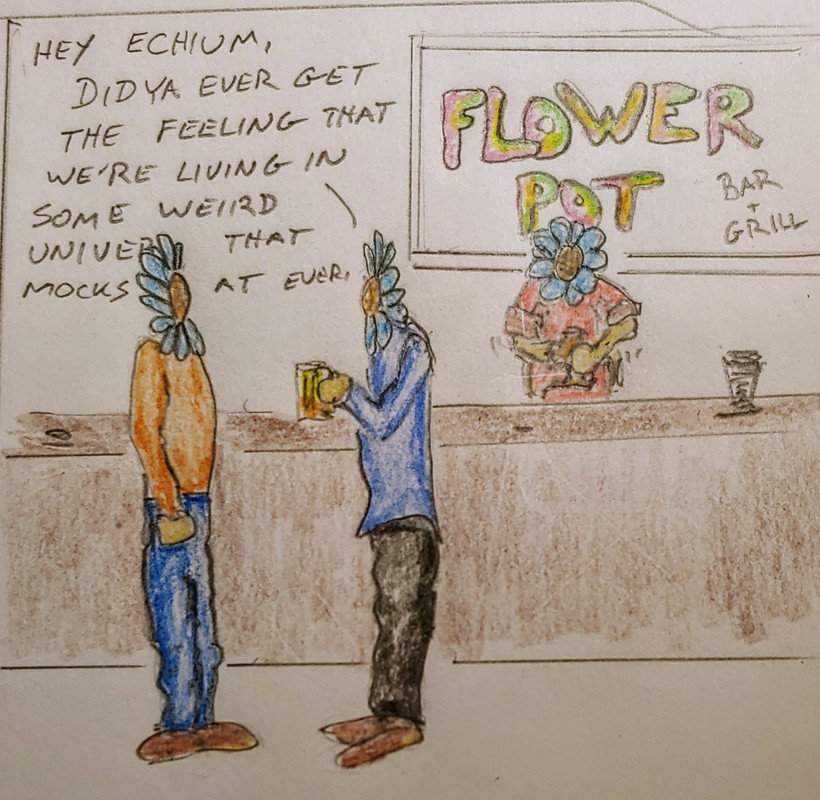 HEY ECHIUM,
DIDYA EVER GET
THE FEELING THAT
WE'RE LIVING IN
SOME WEIIRD
UNIVER THAT
MOCKS AT EVER.
FLOWER
POT
BAR
+
GRILL